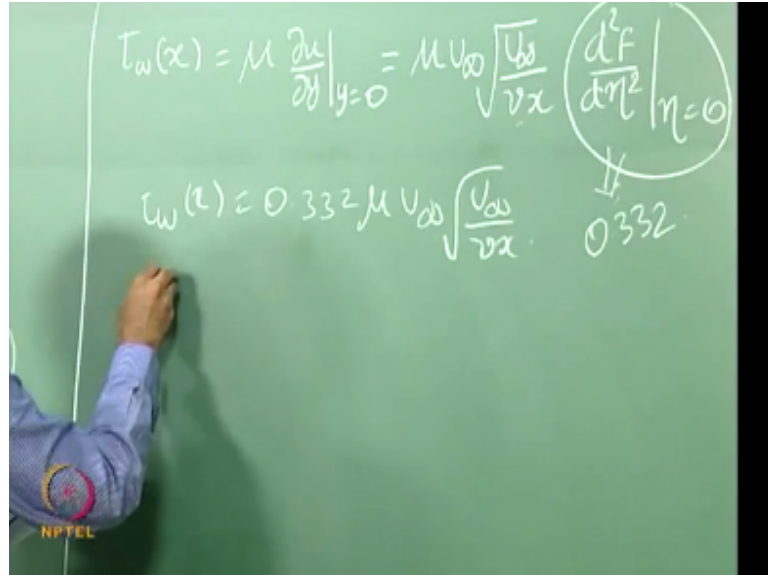 τ_w(x) = μ ∂u/∂y|_{y=0} = μ U_∞ √(U_∞/νx) d²f/dη²|_{η=0}
τ_w(x) = 0.332 μ U_∞ √(U_∞/νx). ⇓ 0332.
NPTEL